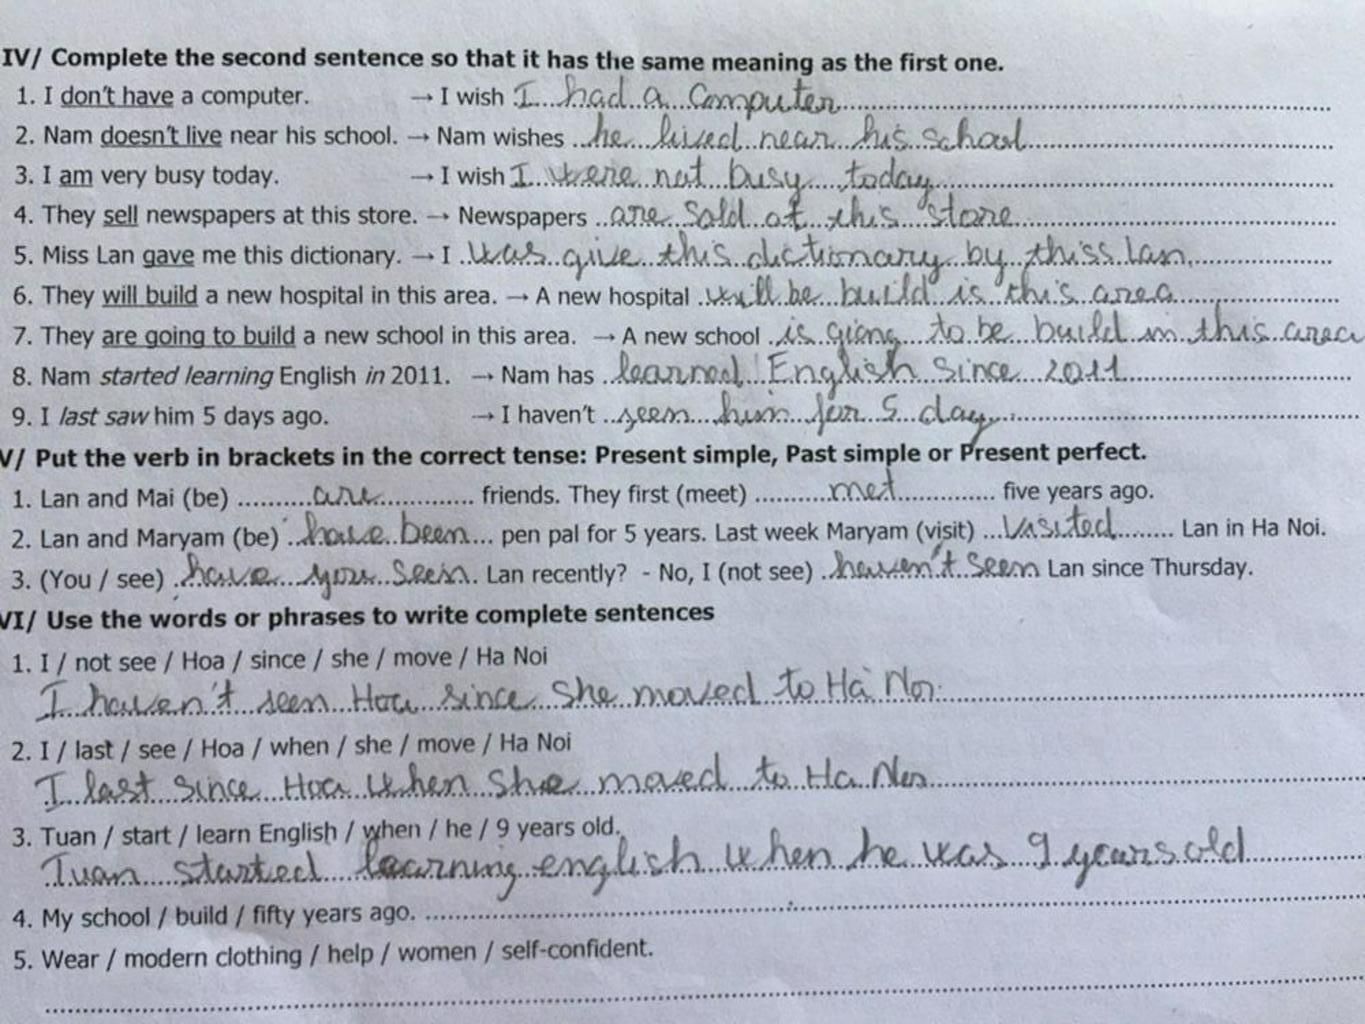 IV/ Complete the second sentence so that it has the same meaning as the first one.
1. I don't have a computer. → I wish I had a Computer
2. Nam doesn't live near his school. → Nam wishes he lived near his school
3. I am very busy today. → I wish I were not busy today
4. They sell newspapers at this store. → Newspapers are sold at this store
5. Miss Lan gave me this dictionary. → I was give this dictionary by thiss Lan
6. They will build a new hospital in this area. → A new hospital will be build is this area
7. They are going to build a new school in this area. → A new school is giong to be build in this area
8. Nam started learning English in 2011. → Nam has learned English since 2011
9. I last saw him 5 days ago. → I haven't seen him for 5 day
V/ Put the verb in brackets in the correct tense: Present simple, Past simple or Present perfect.
1. Lan and Mai (be) are friends. They first (meet) met five years ago.
2. Lan and Maryam (be) have been pen pal for 5 years. Last week Maryam (visit) visited Lan in Ha Noi.
3. (You / see) have you seen. Lan recently? - No, I (not see) haven't seen Lan since Thursday.
VI/ Use the words or phrases to write complete sentences
1. I / not see / Hoa / since / she / move / Ha Noi
I haven't seen Hoa since she moved to Hà Nôi
2. I / last / see / Hoa / when / she / move / Ha Noi
I last since Hoa when she moved to Ha Noi
3. Tuan / start / learn English / when / he / 9 years old.
Tuan started learning english when he was 9 years old
4. My school / build / fifty years ago.
5. Wear / modern clothing / help / women / self-confident.